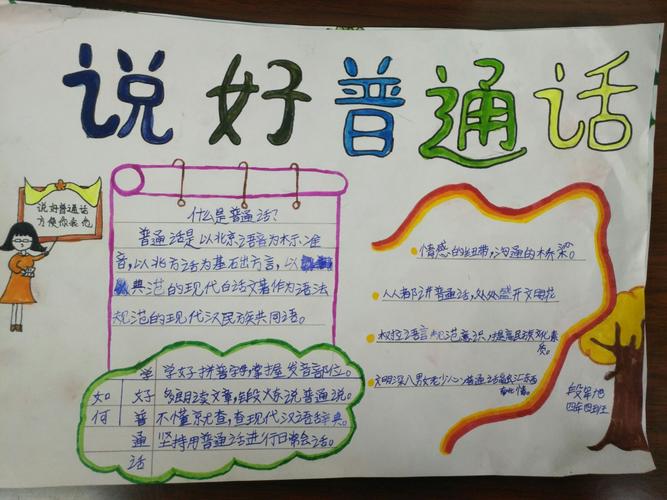 说好普通话
说好普通话
方便你我他
什么是普通话?
普通话是以北京语音为标准
音,以北方话为基石出方言,以
典范的现代白话文著作为语法
规范的现代汉民族共同语。
如何
学好普通话
学好拼音字母掌握发音部位。
多朗读文章,锻炼说普通话。
不懂就查,查现代汉语辞典。
坚持用普通话进行日常会话。
情感的纽带,沟通的桥梁。
人人都讲普通话,处处盛开文明花
树立语言规范意识,提高民族文化素
质。
文明深入男女老少心,普通话
四年四班